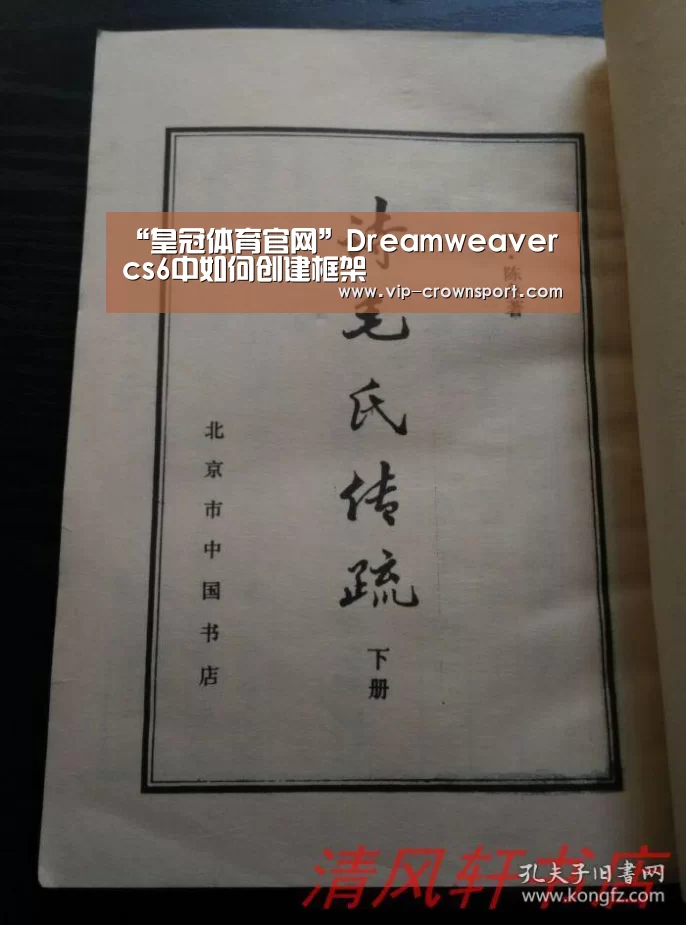 “皇冠体育官网”Dreamweaver
cs6中如何创建框架
www.vip-crownsport.com
陈
著
诗毛氏传疏
下册
北京市中国书店
清风轩书店
孔夫子旧书网
www.kongfz.com